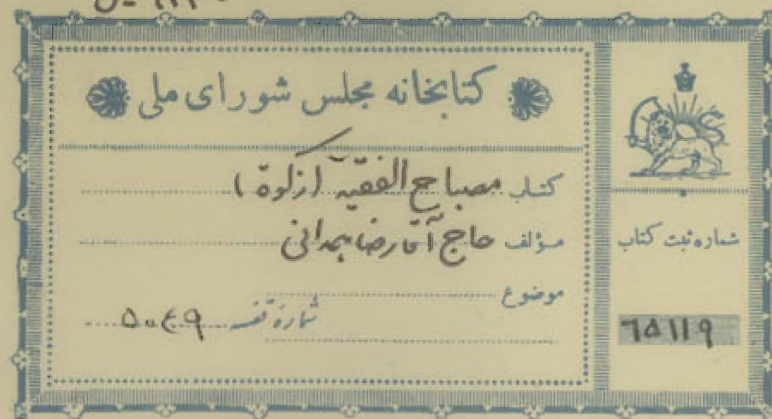 کتابخانه مجلس شورای ملی
کتاب مصباح الفقیه (زکوة)
مؤلف حاج آقا رضا همدانی
موضوع
شماره قفسه ۵۰۴۹
شماره ثبت کتاب
۶۵۱۱۹